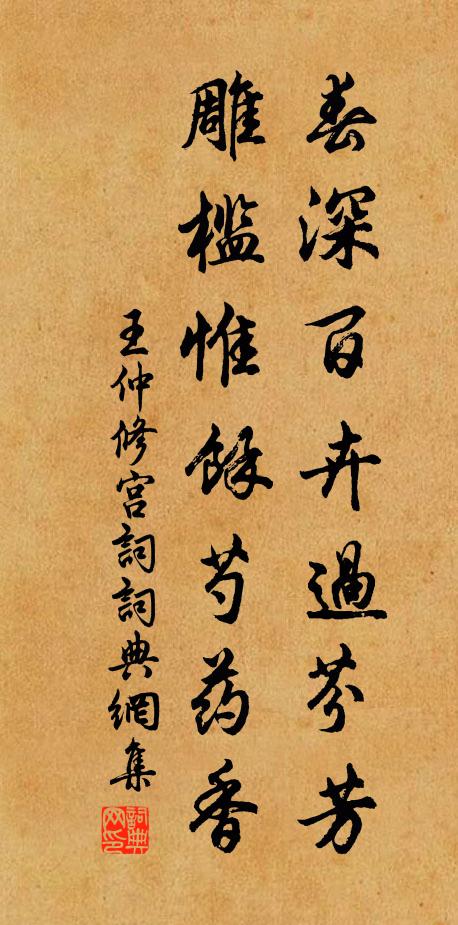 春深百卉過芬芳
雕檻惟餘芍药香
王仲修宮詞詞典網集
詞典网印